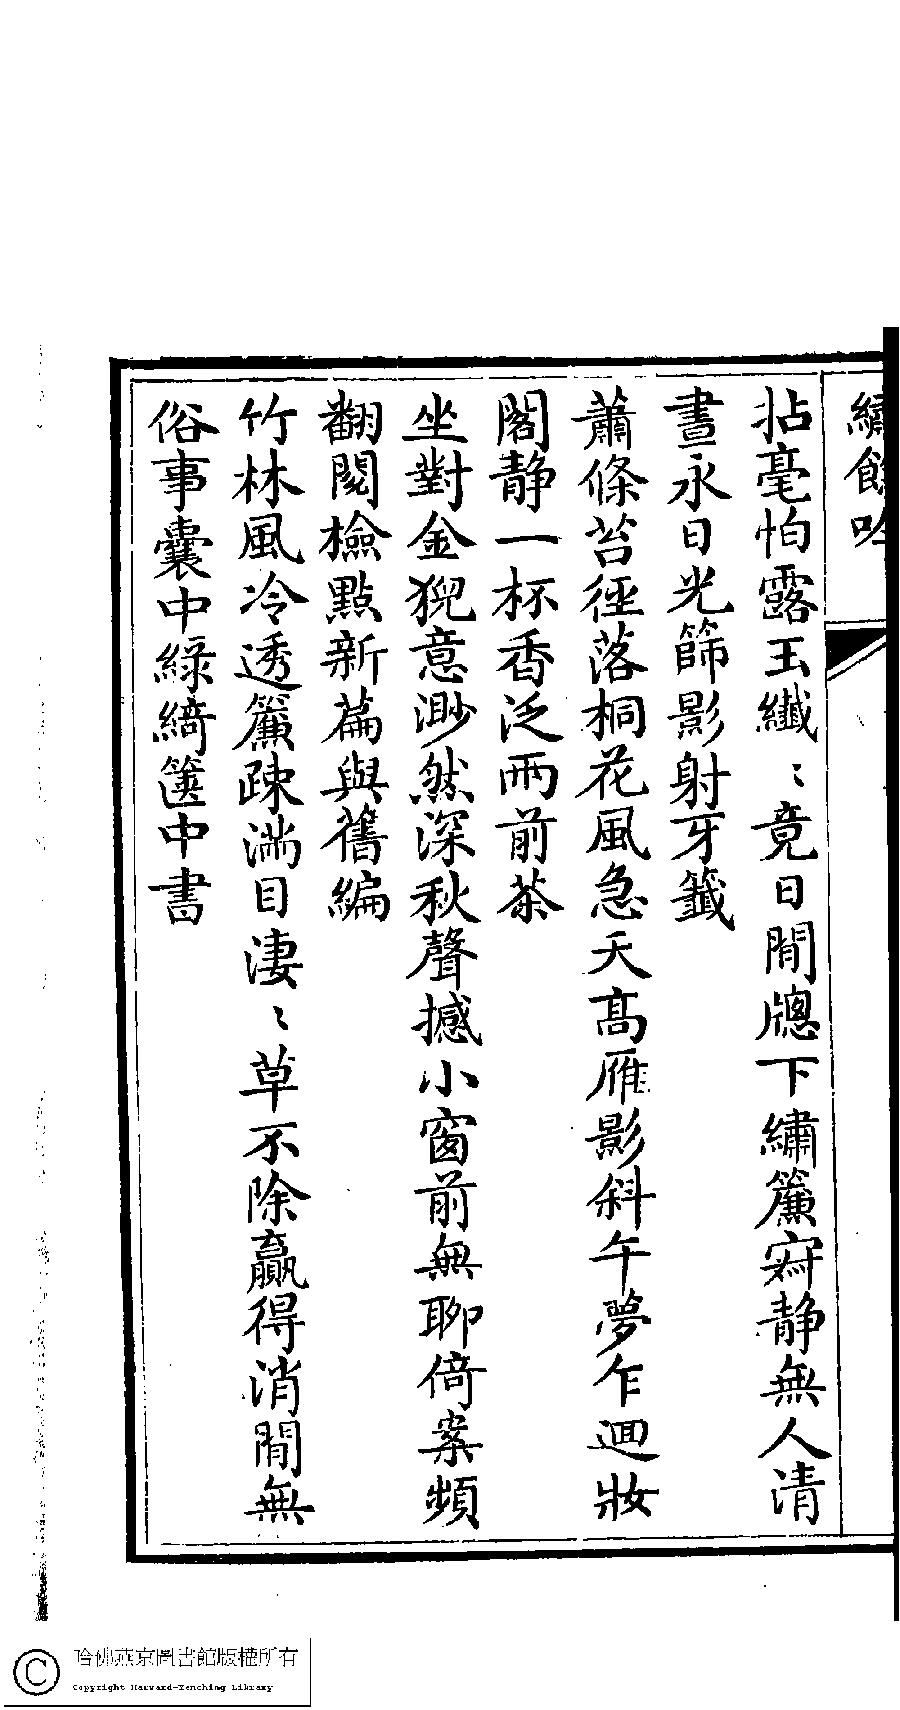 繡餘吟
拈毫怕露玉纖〻竟日閒牕下繡簾寂靜無人清
晝永日光篩影射牙籤
蕭條苔徑落桐花風急天高雁影斜午夢乍迴妝
閣静一杯香泛雨前茶
坐對金猊意渺然深秋聲撼小窗前無聊倚案頻
翻閱檢點新篇與舊編
竹林風冷透簾疎滿目淒〻草不除贏得消閒無
俗事囊中綠綺篋中書
哈佛燕京圖書館版權所有
Copyright Harvard-Yenching Library